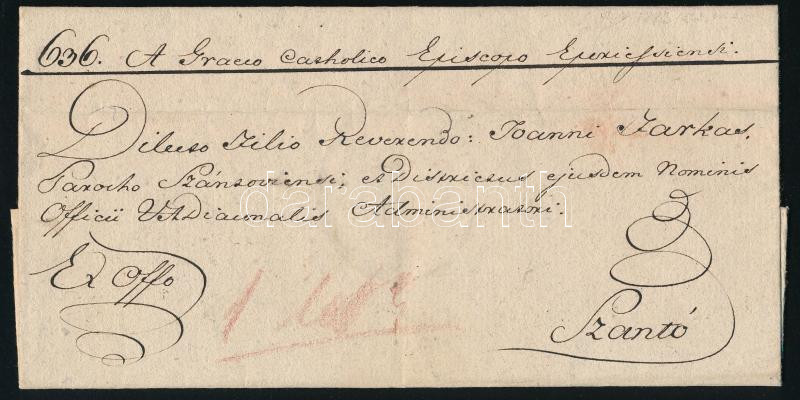 636. A Graeco Catholico Episcopo Eperiessiensi.
Dilecto Filio Reverendo: Joanni Farkas,
Parocho Szántoviensi; et Districtus ejusdem Nominis
Officii VADiaconalis Administratori.
Ex Offo
1
Szantó
darabanth